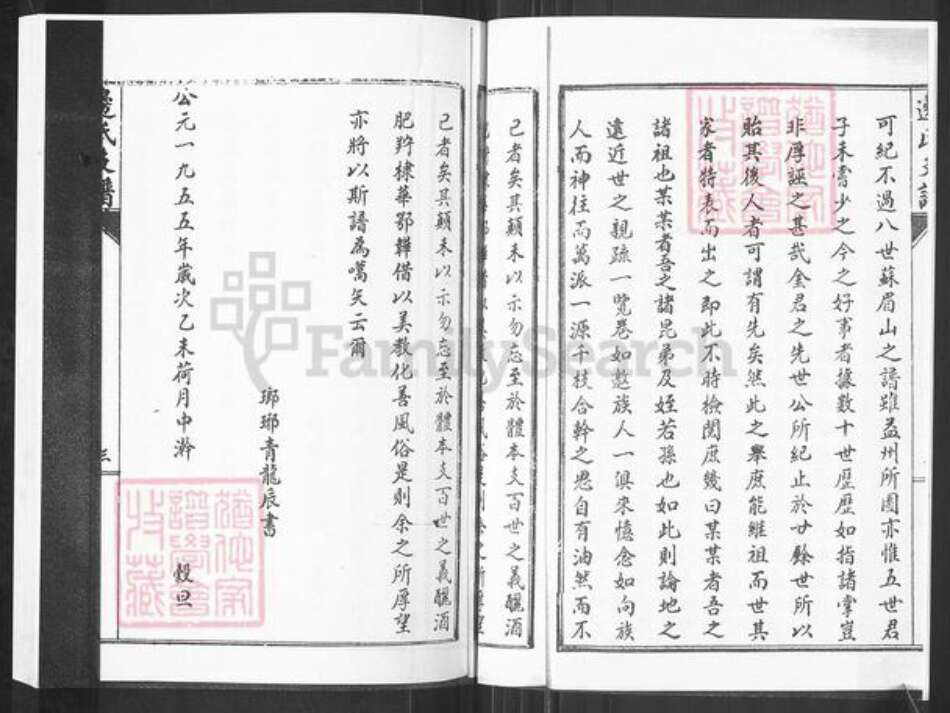 邊氏支譜
可紀不過八世蘇眉山之譜雖益州所圖亦惟五世君
子未嘗少之今之好事者據數十世歷歷如指諸掌豈
非厚誣之甚哉金君之先世公所紀止於廿餘世所以
貽其後人者可謂有先矣然此之舉庶能維祖而世其
家者特表而出之即此不時檢閱庶幾曰某某者吾之
諸祖也某某者吾之諸昆弟及姪若孫也如此則論地之
遠近世之親疏一覽卷如敘族人一俱來憶念如向族
人而神往而萬派一源千枝合幹之思自有油然而不
己者矣其顛末以示勿忘至於體本支百世之義釃酒
己者矣其顛末以示勿忘至於體本支百世之義釃酒
肥羜棣華鄂韡借以美教化善風俗是則余之所厚望
亦將以斯譜為嚆矢云爾
瑯琊青龍辰書
公元一九五五年歲次乙未荷月中澣 穀旦
邊氏支譜
三
FamilySearch